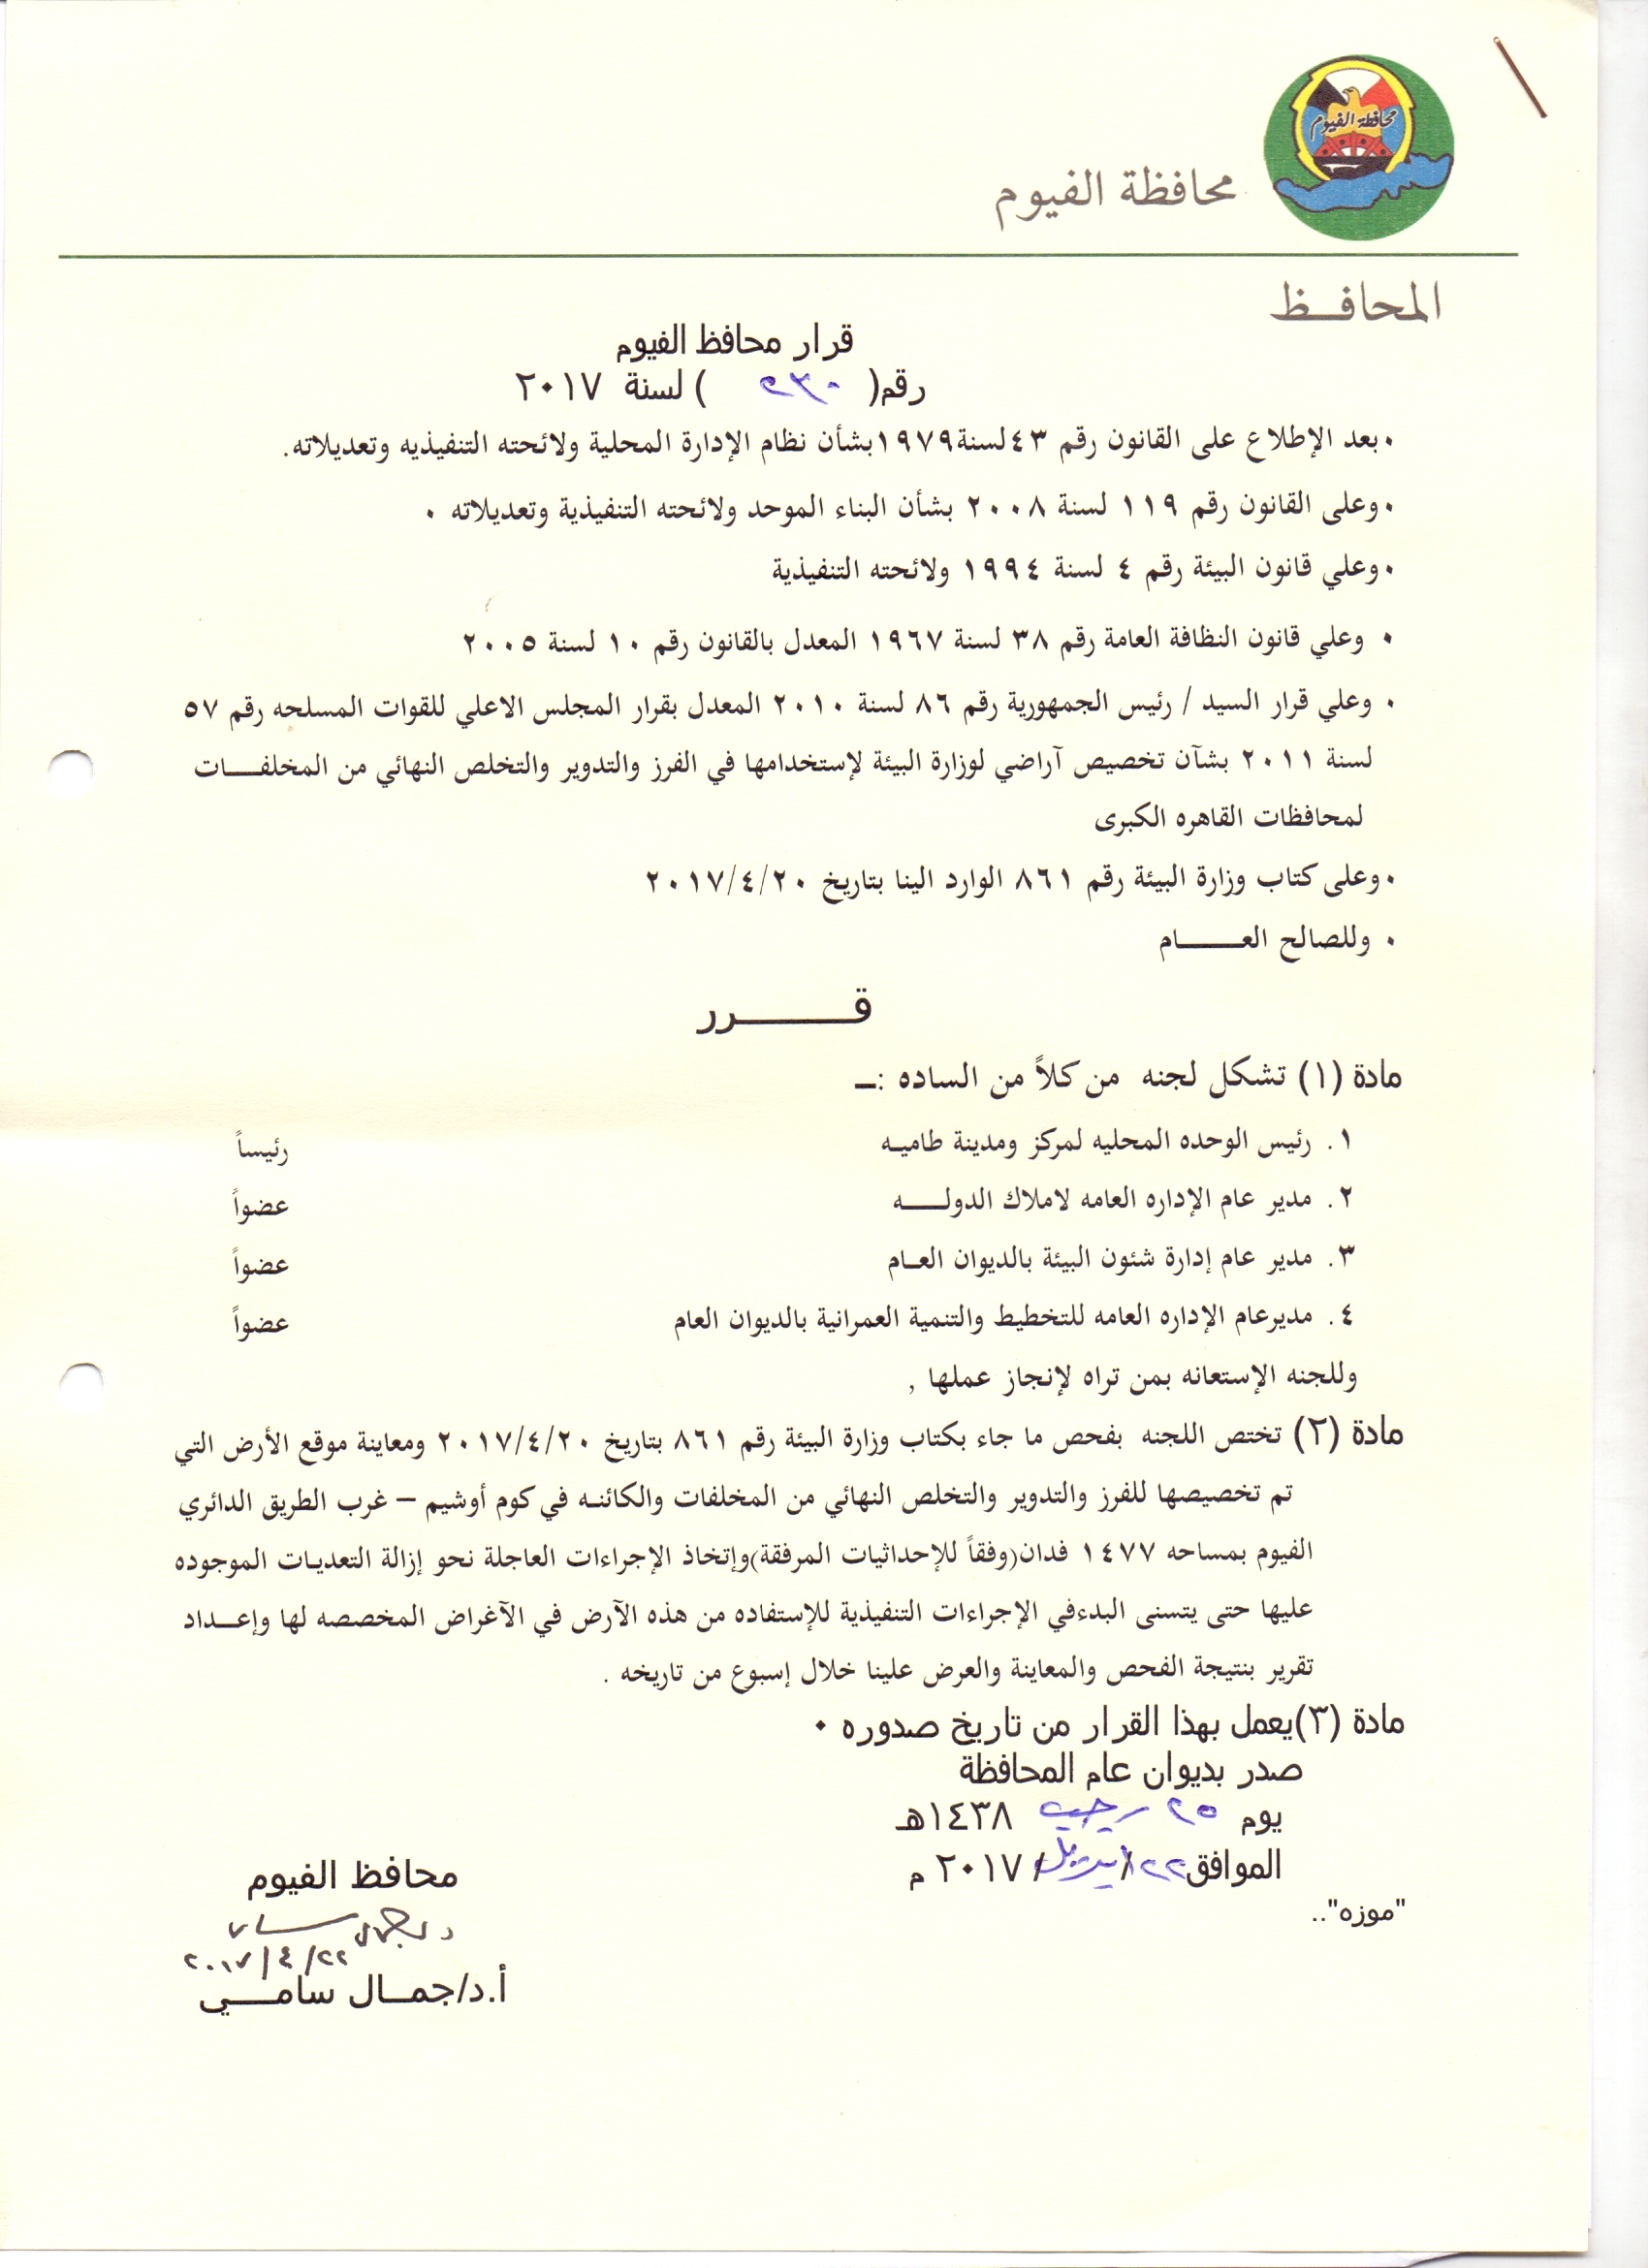 محافظة الفيوم
محافظة الفيوم
المحافــظ
قرار محافظ الفيوم
رقم( ) لسنة ٢٠١٧
• بعد الإطلاع على القانون رقم ٤٣ لسنة١٩٧٩بشأن نظام الإدارة المحلية ولائحته التنفيذيه وتعديلاته.
• وعلى القانون رقم ١١٩ لسنة ٢٠٠٨ بشأن البناء الموحد ولائحته التنفيذية وتعديلاته ٠
• وعلي قانون البيئة رقم ٤ لسنة ١٩٩٤ ولائحته التنفيذية
• وعلي قانون النظافة العامة رقم ٣٨ لسنة ١٩٦٧ المعدل بالقانون رقم ١٠ لسنة ٢٠٠٥
• وعلي قرار السيد / رئيس الجمهورية رقم ٨٦ لسنة ٢٠١٠ المعدل بقرار المجلس الاعلي للقوات المسلحه رقم ٥٧
لسنة ٢٠١١ بشآن تخصيص آراضي لوزارة البيئة لإستخدامها في الفرز والتدوير والتخلص النهائي من المخلفـــات
لمحافظات القاهره الكبرى
• وعلى كتاب وزارة البيئة رقم ٨٦١ الوارد الينا بتاريخ ٢٠١٧/٤/٢٠
• وللصالح العـــــام
قـــــــرر
مادة (١) تشكل لجنه من كلاً من الساده :ـ
١. رئيس الوحده المحليه لمركز ومدينة طاميـه رئيساً
٢. مدير عام الإداره العامه لاملاك الدولـــــه عضواً
٣. مدير عام إدارة شئون البيئة بالديوان العـام عضواً
٤. مديرعام الإداره العامه للتخطيط والتنمية العمرانية بالديوان العام عضواً
وللجنه الإستعانه بمن تراه لإنجاز عملها ,
مادة (٢) تختص اللجنه بفحص ما جاء بكتاب وزارة البيئة رقم ٨٦١ بتاريخ ٢٠١٧/٤/٢٠ ومعاينة موقع الأرض التي
تم تخصيصها للفرز والتدوير والتخلص النهائي من المخلفات والكائنـه في كوم أوشيم – غرب الطريق الدائري
الفيوم بمساحه ١٤٧٧ فدان(وفقاً للإحداثيات المرفقة)وإتخاذ الإجراءات العاجلة نحو إزالة التعديـات الموجوده
عليها حتى يتسنى البدءفي الإجراءات التنفيذية للإستفاده من هذه الآرض في الآغراض المخصصه لها وإعــداد
تقرير بنتيجة الفحص والمعاينة والعرض علينا خلال إسبوع من تاريخه .
مادة (٣)يعمل بهذا القرار من تاريخ صدوره ٠
صدر بديوان عام المحافظة
يوم ٢٥ رجب ١٤٣٨هـ
الموافق٢٢/ابريل/٢٠١٧ م
محافظ الفيوم
"موزه"..
٢٠١٧/٤/٢٢
أ.د/جمــال سامــــي